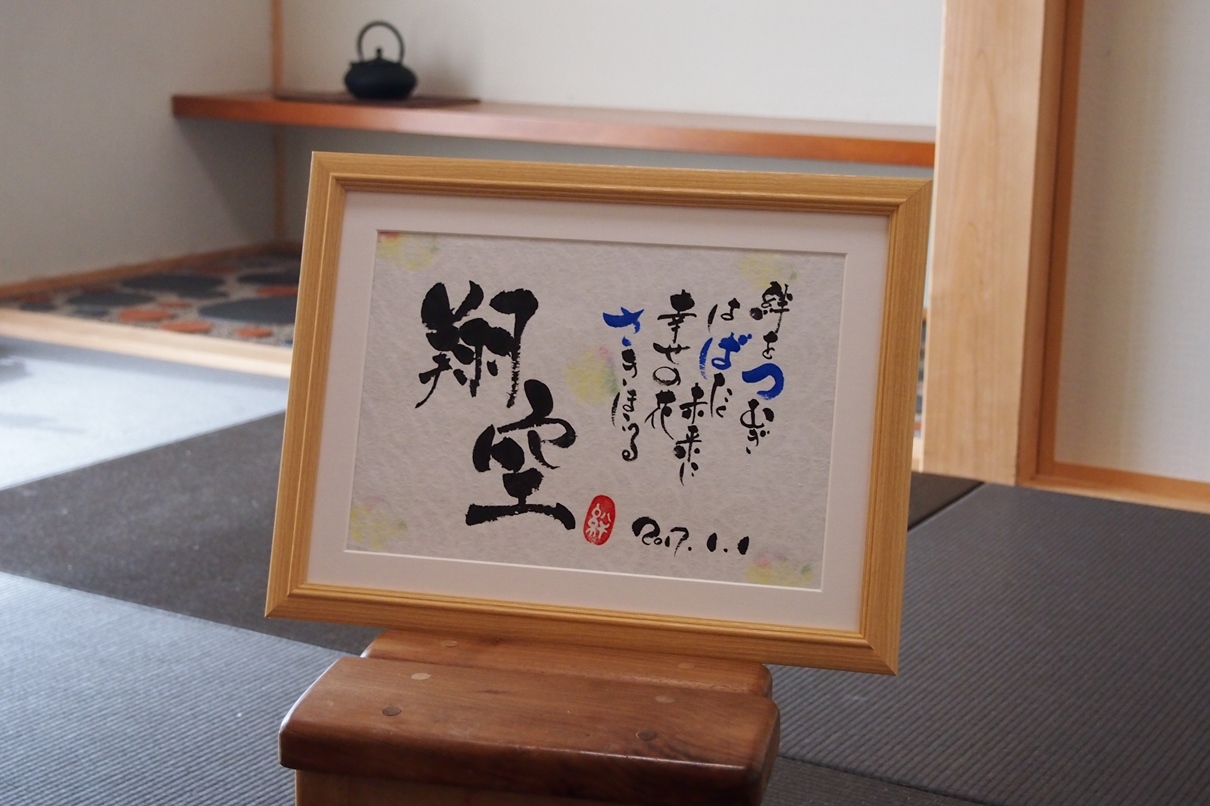 絆をつむぎ
はばたく未来に
幸せの花
さきほこる
翔空
2017.1.1